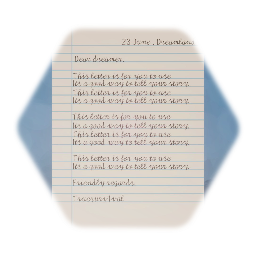 23 June, Dreamland
Dear dreamer,
This letter is for you to use
It's a good way to tell your story.
This letter is for you to use
It's a good way to tell your story.
This letter is for you to use
It's a good way to tell your story.
This letter is for you to use
It's a good way to tell your story.
This letter is for you to use
It's a good way to tell your story.
Friendly regards